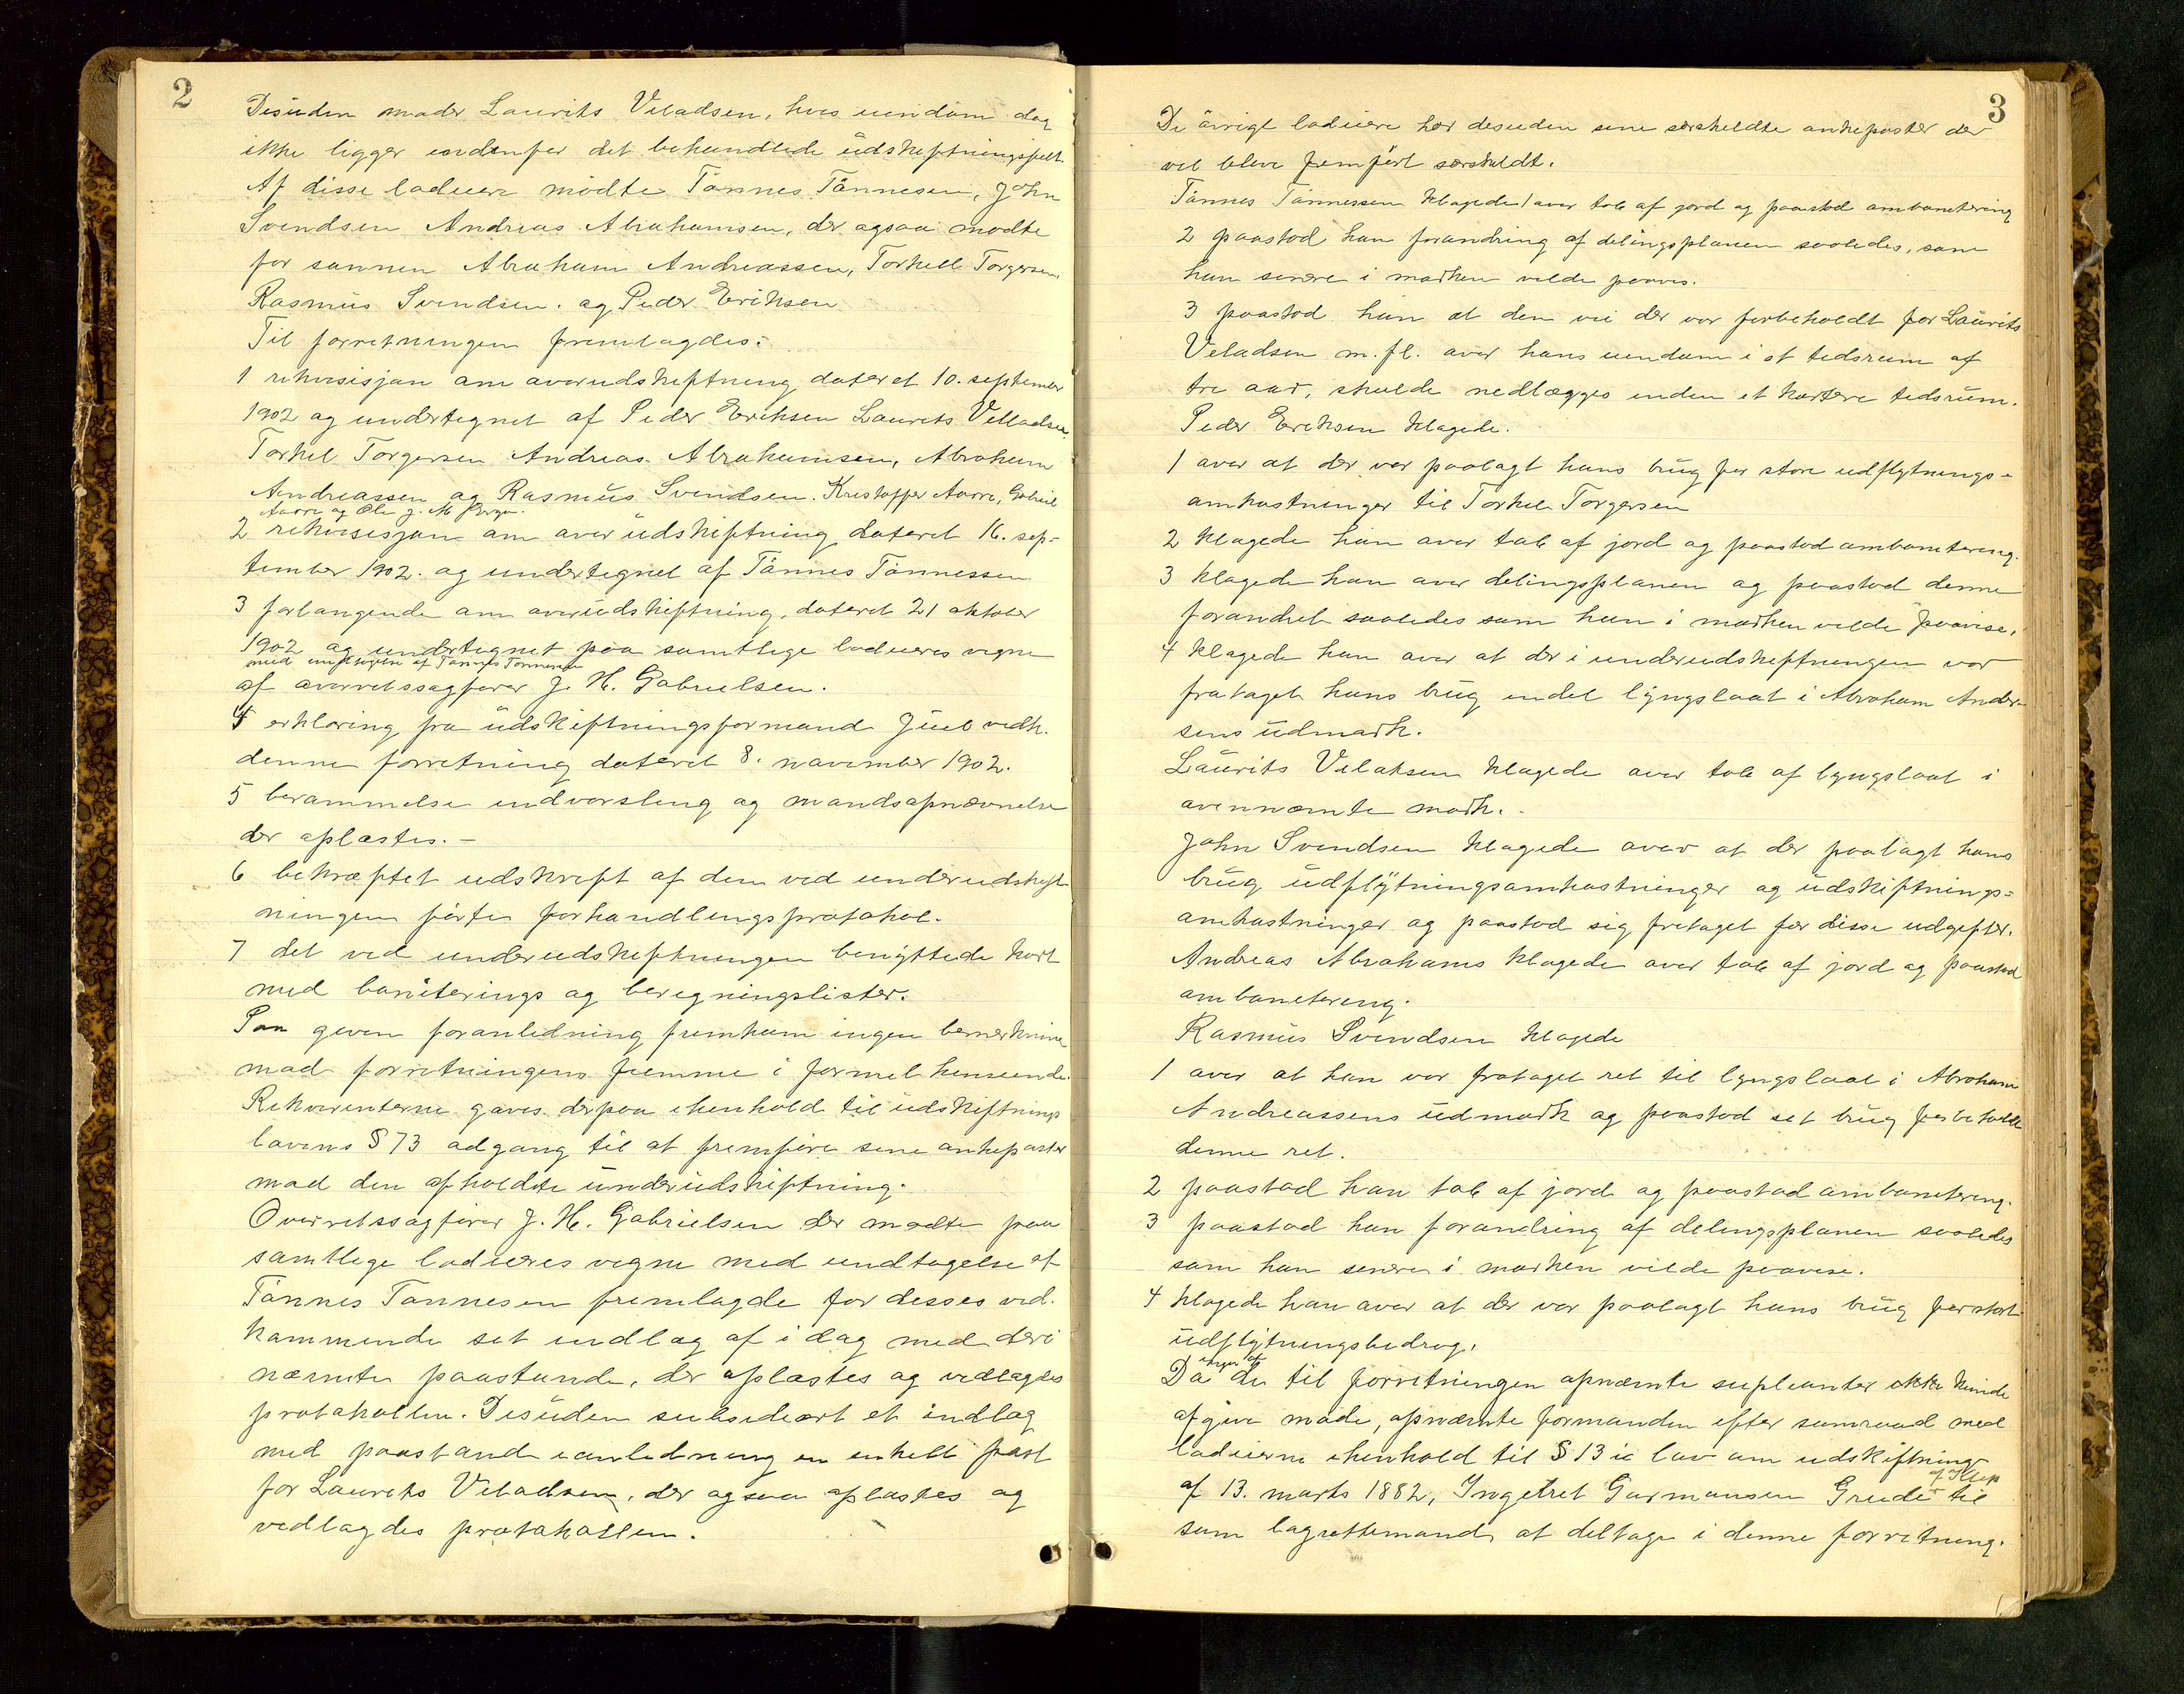 2
Desuden møder Laurits Veladsen, hvis eiendom dog
ikke ligger indenfor det behandlede udskiftningsfelt.
Af disse lodeiere mødte Tønnes Tønnesen, John
Svendsen Andreas Abrahamsen, der ogsaa mødte
for sønnen Abraham Andreassen, Torkell Torgersen
Rasmus Svendsen. og Peder Eriksen
Til forretningen fremlagdes:
1 rekvisisjon om overudskiftning dateret 10. september
1902 og undertegnet af Peder Eriksen Laurits Velladsen
Torkel Torgersen Andreas Abrahamsen, Abraham
Andreassen og Rasmus Svendsen. Kristoffer Aarre, Gabriel
Aarre og Ole J. M
2 rekvisisjon om overudskiftning dateret 16. sep-
tember 1902. og undertegnet af Tønnes Tønnessen
3 forlangende om overudskiftning, dateret 21 oktober
1902 og undertegnet paa samtlige lodeieres vegne
med undtagelse af Tønnes Tønnessen
af overretssagfører J. H. Gabrielsen.
4 erklæring fra udskiftningsformand Juul vedk.
denne forretning dateret 8. november 1902.
5 berammelse indvarsling og mandsopnævnelse
der oplæstes. -
6 bekræftet udskrift af den ved underudskift
ningen førte forhandlingsprotokol.
7 det ved underudskiftningen benyttede kart
med boniterings og beregningslister.
Paa given foranledning fremkom ingen bemerkning
mod forretningens fremme i formel henseende.
Rekvirenterne gaves derpaa ihenhold til udskiftnings
lovens § 73 adgang til at fremføre sine ankeposter
mod den afholdte underudskiftning.
Overretssagfører J. H. Gabrielsen der mødte paa
samtlige lodeieres vegne med undtagelse af
Tønnes Tønnesen fremlagde for desses ved-
kommende sit indlæg af i dag med deri
nævnte paastande, der oplæstes og vedlagdes
protokollen. Desuden subsidiært et indlæg
med paastand i anledning en enkelt post
for Laurits Veladsen, der ogsaa oplæstes og
vedlagdes protokollen.
3
De øvrige lodeiere har desuden sine særskeldte ankeposter der
vil blive fremført særskeldt.
Tønnes Tønnessen klagede 1 over tab af jord og paastod ombonitering
2 paastod han forandring af delingsplanen saaledes, som
han senere i marken vilde paavis.
3 paastod han at den vei der var forbeholdt for Laurits
Veladsen m. fl. over hans eiendom i et tidsrum af
tre aar, skulde nedlægges inden et kortere tidsrum.
Peder Eriksen klagede.
1 over at der var paalagt hans brug for store udflytnings-
omkostninger til Torkel Torgersen
2 klagede han over tab af jord og paastod ombonitering.
3 klagede han over delingsplanen og paastod denne
forandret saaledes som han i marken vilde paavise.
4 klagede han over at der i underudskiftningen var
frataget hans brug endel lyngslaat i Abraham Andre-
sens udmark.
Laurits Velaksen klagede over tab af lyngslaat i
ovennævnte mark.
John Svendsen klagede over at der paalagt hans
brug udflytningsomkostninger og udskiftnings-
omkostninger og paastod sig fritaget for disse udgifter.
Andreas Abrahams klagede over tab af jord og paastod
ombonitering.
Rasmus Svendsen klagede
1 over at han var frataget ret til lyngslaat i Abraham
Andreassens udmark og paastod sit brug forbeholdt
denne ret.
2 paastod han tab af jord og paastod ombonitering.
3 paastod han forandring af delingsplanen saaledes
som han senere i marken vilde paavise.
4 klagede han over at der var paalagt hans brug for stort
udflytningsbedrag.
ingen af
Da de til forretningen opnævnte supleanter ikke kunde
afgive møde, opnævnte formanden efter samraad med
lodeierne ihenhold til § 13 i lov om udskiftning
af Klep
af 13. marts 1882, Ingebret Garmansen Grude til
som lagrettemand at deltage i denne forretning.